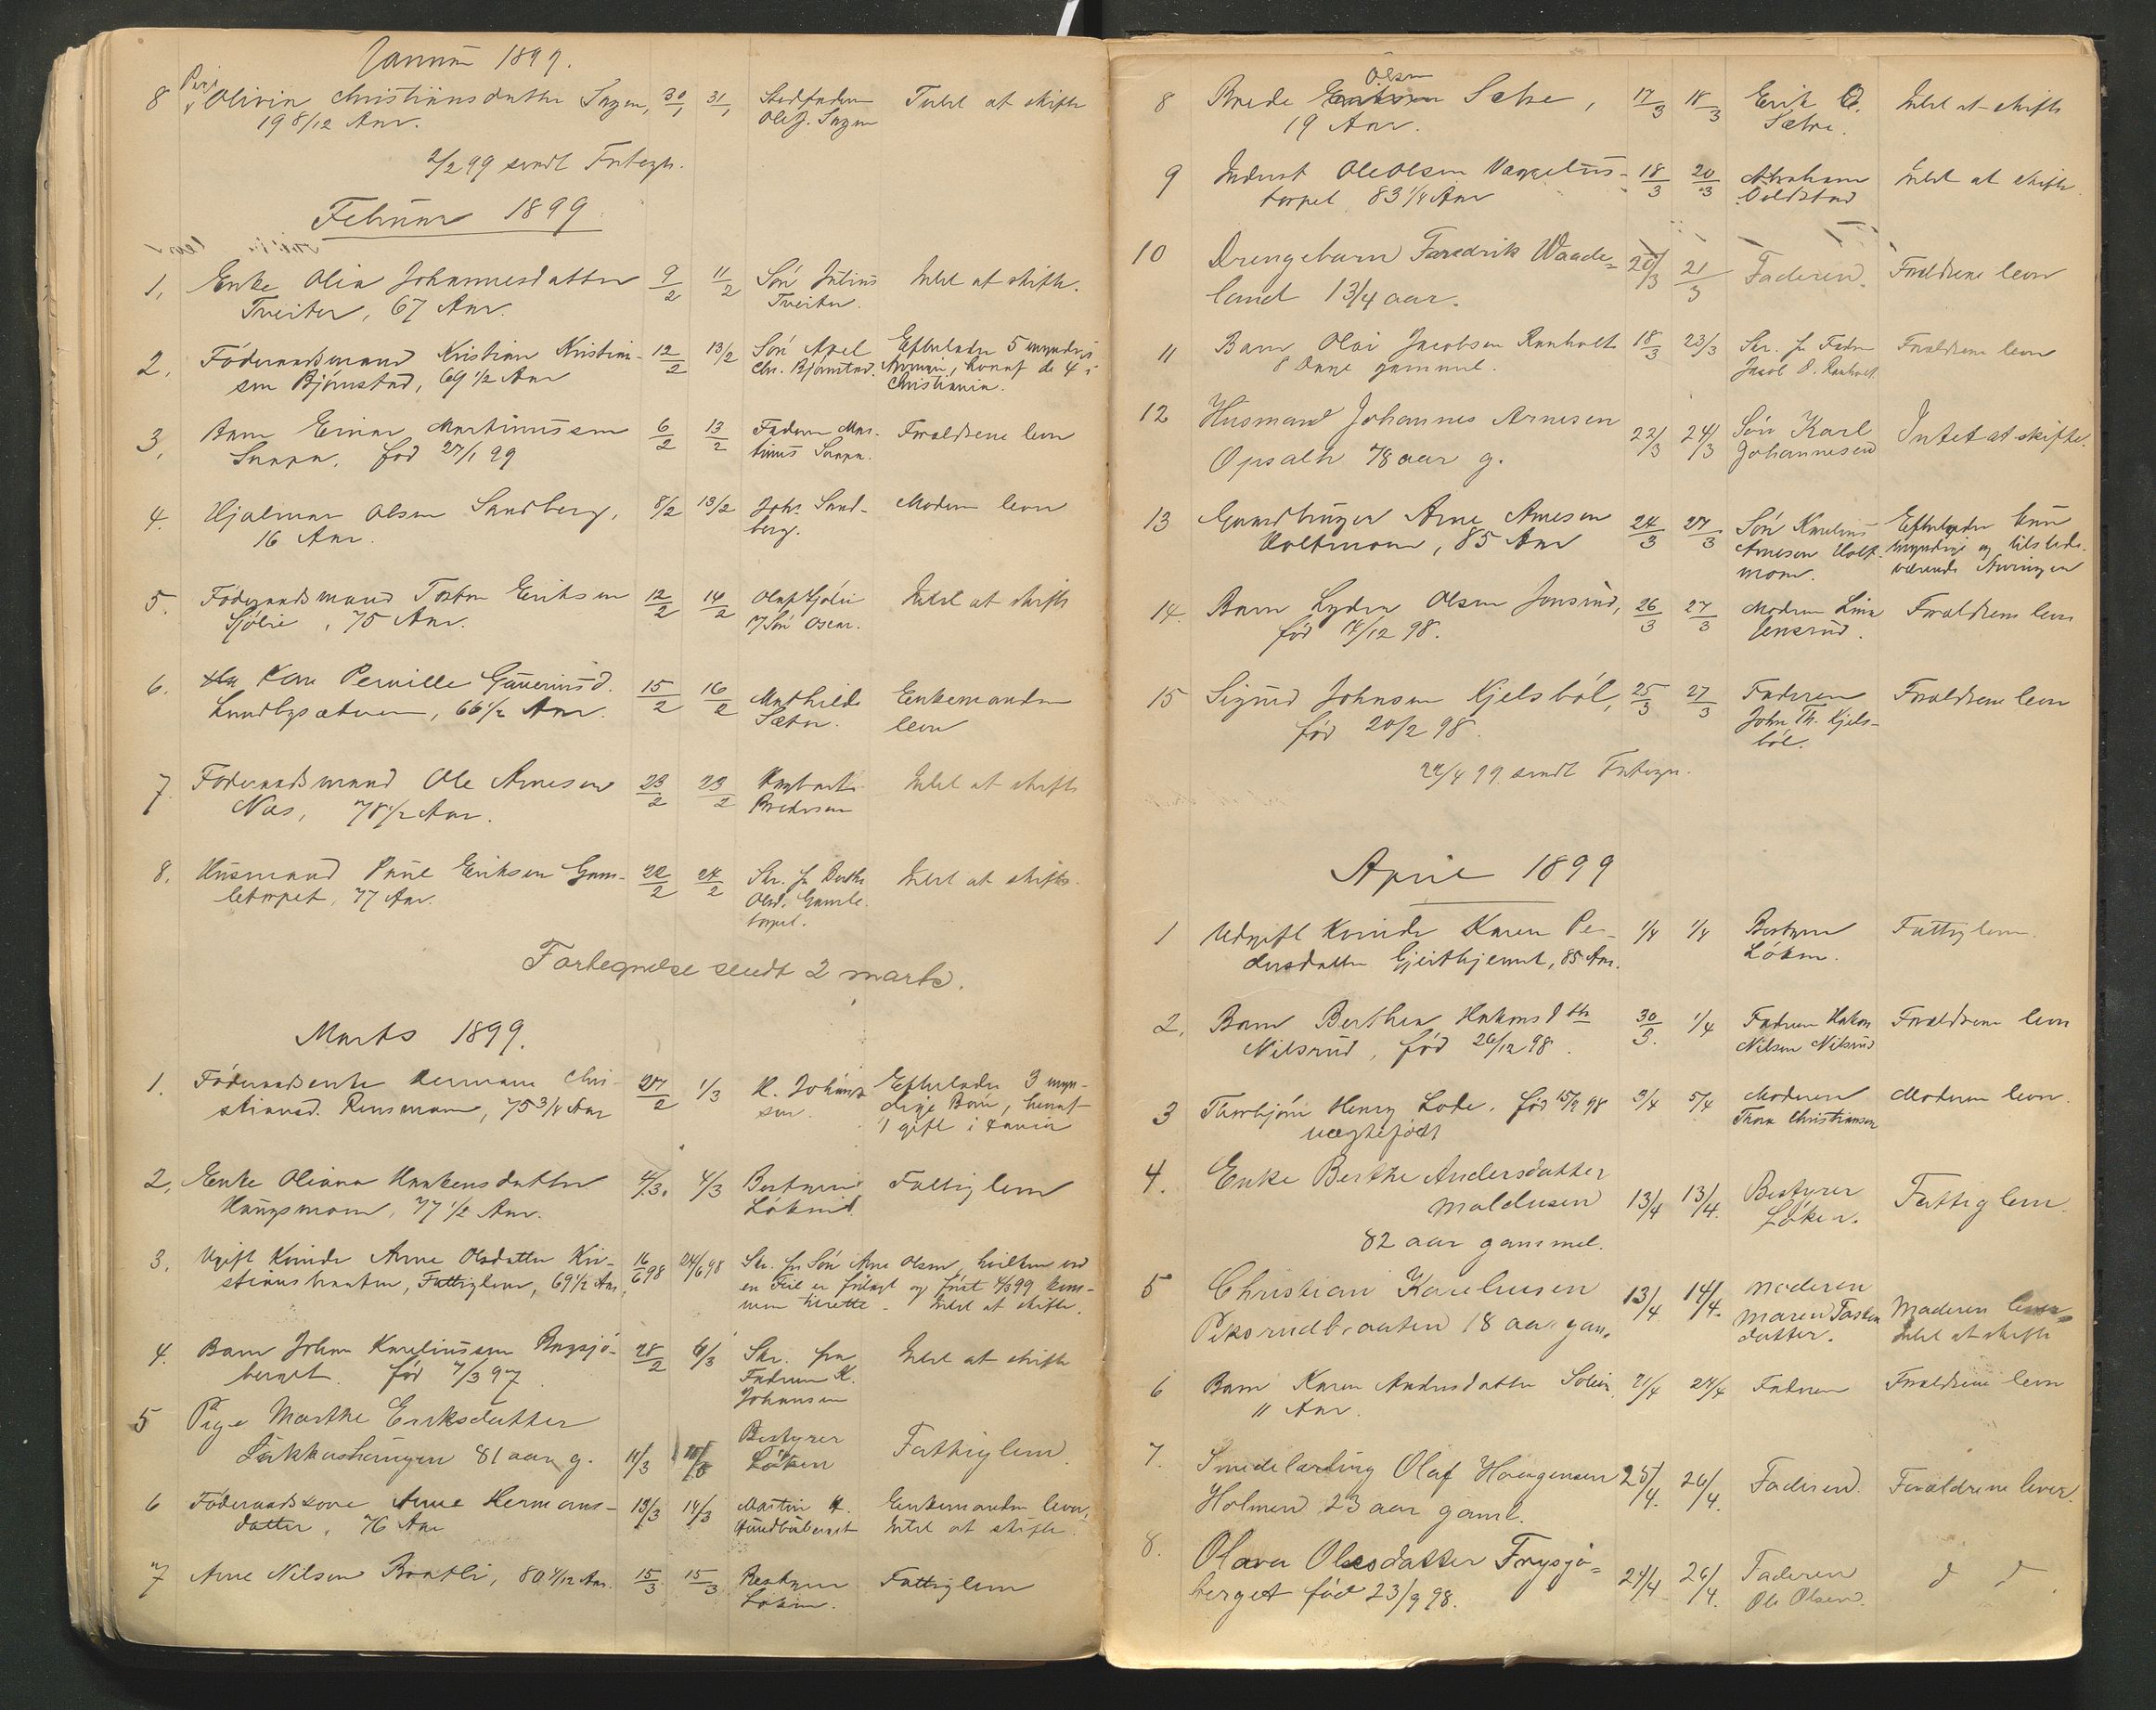 Januar 1899.
8 Pige Olivia Christiansdatter Sagen, 30/1 31/1 Stedfaderen Intet at skifte
19 8/12 Aar. Ole J. Sagen
2/2 99 sendt Fortegn.
Februar 1899
1, Enke Olia Johannesdatter 9/2 11/2 Søn Julius Intet at skifte.
Tveiter, 67 Aar. Tveiter.
2, Föderaadsmand Kristian Kristian- 12/2 13/2 Søn Axel Efterlader 5 myndige
sen Björnstad, 69 1/2 Aar Chr. Björnstad. Arvinger, hvoraf de 4 i
Christiania.
3, Barn Einar Martinussen 6/2 13/2 Faderen Mar- Forældrene lever
född 27/1 99 tinus
4. Hjalmar Olsen Sandberg, 8/2 13/2 Johs. Sand- Moderen lever
16 Aar. berg.
5. Föderaadsmand Torsten Eriksen 12/2 14/2 Olaf Sjölie Intet at skifte
Sjölie, 75 Aar. Søn Oscar.
6. Kone Pernille Gauerinusd. 15/2 16/2 Mathilde Enkemanden
Lundbysæteren, 66 1/2 Aar. Sæter. lever
7. Föderaadsmand Ole Arnesen 23/2 23/2 Intet at skifte
Næs, 78 1/2 Aar. Pedersen
8. Husmand Paul Eriksen Gam- 22/2 24/2 Skr. fr Berthe Intet at skifte.
letorpet, 77 Aar. Olsd. Gamle-
torpet.
Fortegnelse sendt 2 marts.
Marts 1899.
1. Föderaadsenke Chri- 27/2 1/3 K. Johan- Efterlader 3 myn-
stiansd. Rensmoen, 75 3/4 Aar sen. dige Börn, hvoraf
1 gift i
2, Enke Oliana Haakensdatter 4/3. 4/3 Bestyrer Fattiglem
Haugsmoen, 77 1/2 Aar. Löken
3. Ugift Kvinde Anne Olsdatter Kri- 16/6 98 24/6 98 Skr. fr Søn Arne Olsen, hvilken ved
stiansbraaten, Fattiglem, 69 1/2 Aar, en Feil er forlagt og först 4/3 99 kom-
men tilrette. Intet at skifte.
4. Barn Johan Karelinssen Bagsjö- 28/2 6/3 Skr. fra Intet at skifte
berget. föd 7/3 97. Faderen K.
Johansen
5 Pige Marthe Eriksdatter Bestyrer
81 aar g. 11/3 Löken Fattiglem.
6 Föderaadskone Anne Hermans- 13/3 14/3 Martin H. Enkemanden lever,
datter, 76 Aar Intet at skifte.
7 Arne Nilsen Braatli, 80 4/12 Aar. 15/3 15/3 Bestyrer Fattiglem
Löken.
Olsen
8 Brede Eriksen Sætre, 17/3 18/3 Erik O. Intet at skifte
19 Aar. Sætre.
9 Inderst Ole Olsen 18/3 20/3 Abraham Intet at skifte.
torpet 83 1/4 Aar Voldstad
10 Drengebarn Fredrik Waade- 20/3 21/3 Faderen. Forældrene lever
land 1 3/4 aar.
11 Barn Olai Jacobsen Ranholt 18/3 23/3 Skr. fr Fader Forældrene lever
8 Dage gammel. Jacob O. Ranholt.
12 Husmand Johannes Arnesen 22/3 24/3 Søn Karl Intet at skifte.
Opsalh 78 aar g. Johannesen
13 Gaardbruger Arne Arnesen 24/3 27/3 Søn Karelius Efterlader kun
Holtmoen, 85 Aar Arnesen Holt- myndige og tilstede-
moen. værende Arvinger
14. Barn Lydia Olsen Jensrud, 26/3 27/3 Moderen Lina Forældrene lever
föd 14/12 98. Jensrud.
15 Sigurd Johnsen Kjelsböl, 25/3 27/3 Faderen Forældrene lever
föd 20/2 98. John Th. Kjels-
böl.
24/4 99 sendt Fortegn.
April 1899
1 Ugift Kvinde Karen Pe- 1/4 1/4 Bestyrer Fattiglem.
dersdatter Gjeithjemmet, 85 Aar. Löken.
2, Barn Berthea Hakonsdtr 30/3. 1/4 Faderen Hakon Forældrene lever
Nilsrud, föd 26/12 98. Nilsen Nilsrud
3 Thorbjörn Henry Lode. föd 15/9 98 3/4 5/4 Moderen Moderen lever.
uægtefödt Thora Christiansen
4. Enke Berthe Andersdatter
Moldusen 13/4 13/4. Bestyrer Fattiglem.
82 aar gammel. Löken.
5 Christian Karelinsen 13/4 14/4. Moderen Moderen lever
Piksrudbraaten 18 aar gam. Maren Torsten Intet at skifte
datter.
6 Barn Karen Andersdatter Solien, 21/4 24/4 Faderen Forældrene lever
11 Aar.
7. Smedelærling Olaf Haagensen 25/4. 26/4. Faderen. Forældrene lever.
Holmen 23 aar gaml.
8. Olava Olesdatter Frysjö- 24/4 26/4. Faderen d d.
berget föd 23/9 98. Ole Olsen.